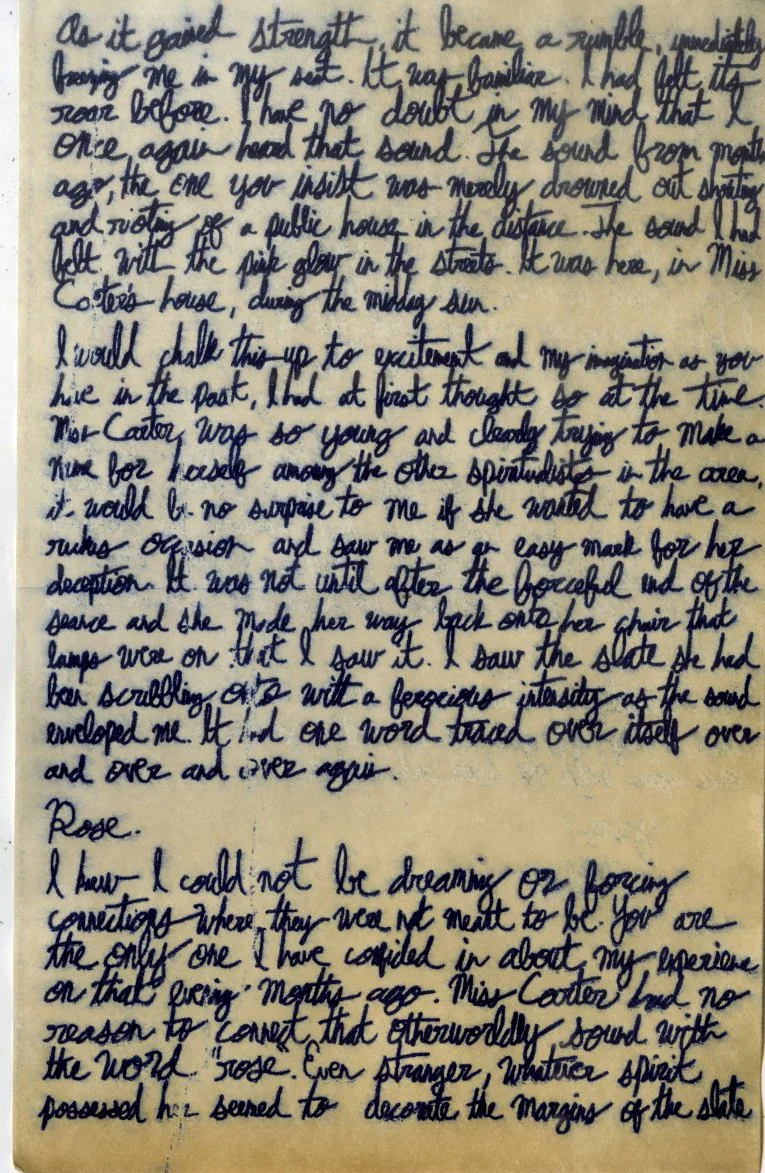 As it gained strength, it became a rumble, immediately
freezing me in my seat. It was familiar. I had felt its
roar before. I have no doubt in my mind that I
once again heard that sound. The sound from months
ago, the one you insist was merely drowned out shouting
and rioting of a public house in the distance. The sound I had
felt with the pink glow in the streets. It was here, in Miss
Carter's house, during the midday sun.
I would chalk this up to excitement and my imagination as you
have in the past, I had at first thought so at the time.
Miss Carter was so young and clearly trying to make a
name for herself among the other spiritualists in the area,
it would be no surprise to me if she wanted to have a
ruckus occasion and saw me as an easy mark for her
deception. It was not until after the forceful end of the
seance and she made her way back onto her chair that
lamps were on that I saw it. I saw the slate she had
been scribbling onto with a ferocious intensity as the sound
enveloped me. It had one word traced over itself over
and over and over again.
Rose.
I knew I could not be dreaming or forcing
connections where they were not meant to be. You are
the only one I have confided in about my experience
on that evening months ago. Miss Carter had no
reason to connect that otherworldly sound with
the word "rose". Even stranger, whatever spirit
possessed her seemed to decorate the margins of the slate